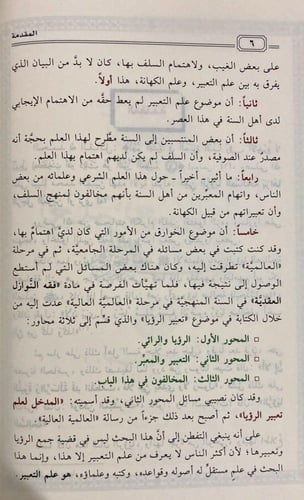 المقدمة
٦
على بعض الغيب، ولاهتمام السلف بها، كان لا بدَّ من البيان الذي
يفرق به بين علم التعبير، وعلم الكهانة، هذا أولاً.
ثانياً: أن موضوع علم التعبير لم يعط حقَّه من الاهتمام الإيجابي
لدى أهل السنة في هذا العصر.
ثالثاً: أن بعض المنتسبين إلى السنة مطَّرِح لهذا العلم بحجَّة أنه
مصدر عند الصوفية، وأن السلف لم يكن لديهم اهتمام بهذا العلم.
رابعاً: ما أثير ـ أخيراً ـ حول هذا العلم الشرعي وعلمائه من بعض
الناس، واتهام المعبِّرين من أهل السنة بأنهم مخالفون لمنهج السلف،
وأن تعبيراتهم من قبيل الكهانة.
خامساً: أن موضوع الخوارق من الأمور التي كان لديَّ اهتمامٌ بها،
وقد كنت كتبت في بعض مسائله في المرحلة الجامعيَّة، ثم في مرحلة
«العالميَّة» تطرقت إليه، وكان هناك بعض المسائل التي لم أستطع
الوصول إلى نتيجة فيها، فلما تهيَّأت الفرصة في مادة «فقه النَّوازل
العقديَّة» في السنة المنهجيَّة في مرحلة «العالميَّة العالية» عدت إليه من
خلال الكتابة في موضوع «تعبير الرؤيا» والذي قسِّم إلى ثلاثة محاور:
□ المحور الأول: الرؤيا والرائي.
□ المحور الثاني: التعبير والمعبِّر.
□ المحور الثالث: المخالفون في هذا الباب.
وقد كان نصيبي مسائل المحور الثاني، وقد أسميته: «المدخل لعلم
تعبير الرؤيا»، ثم أصبح بعد ذلك جزءاً من رسالة «العالمية العالية».
على أنه ينبغي التفطن إلى أنَّ هذا البحث ليس في قضية جمع الرؤيا
وتعبيرها؛ لأن أكثر الناس لا يعرفون من علم الرؤيا إلا هذا، وإنما هذا
البحث في علمٍ مستقلٍّ له أصوله وقواعده، وكتبه وعلماؤه، هو علم التعبير.